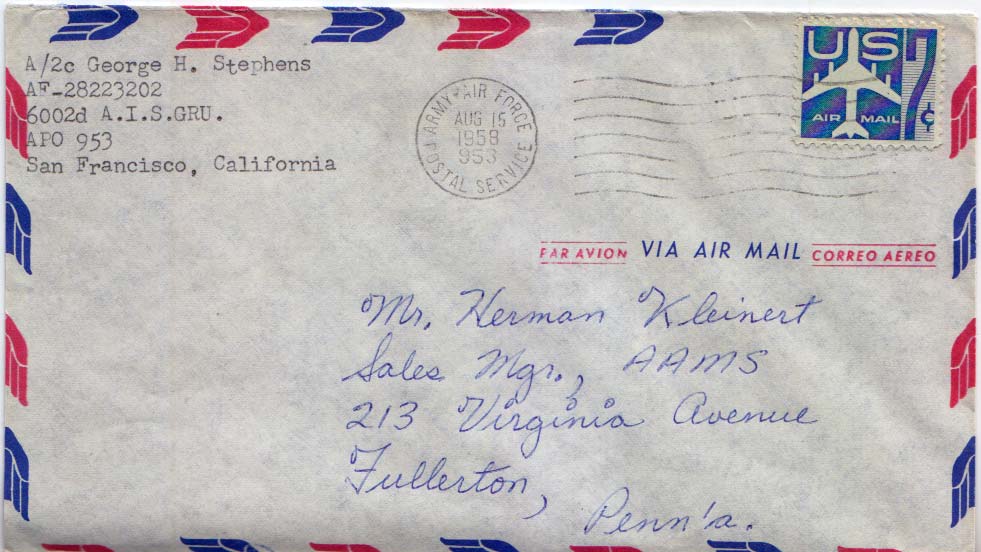 A/2c George H. Stephens
AF-28223202
6002d A.I.S.GRU.
APO 953
San Francisco, California
ARMY-AIR FORCE
AUG 15
1958
953
POSTAL SERVICE
US
AIR MAIL
7¢
PAR AVION VIA AIR MAIL CORREO AEREO
Mr. Herman Kleinert
Sales Mgr., AAMS
213 Virginia Avenue
Fullerton,
Penn'a.